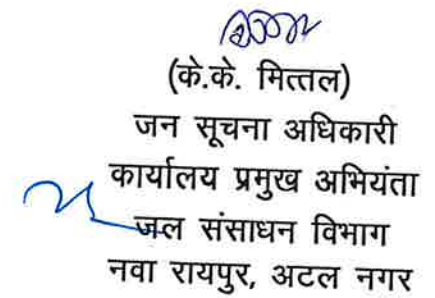 (के.के. मित्तल)
जन सूचना अधिकारी
कार्यालय प्रमुख अभियंता
जल संसाधन विभाग
नवा रायपुर, अटल नगर